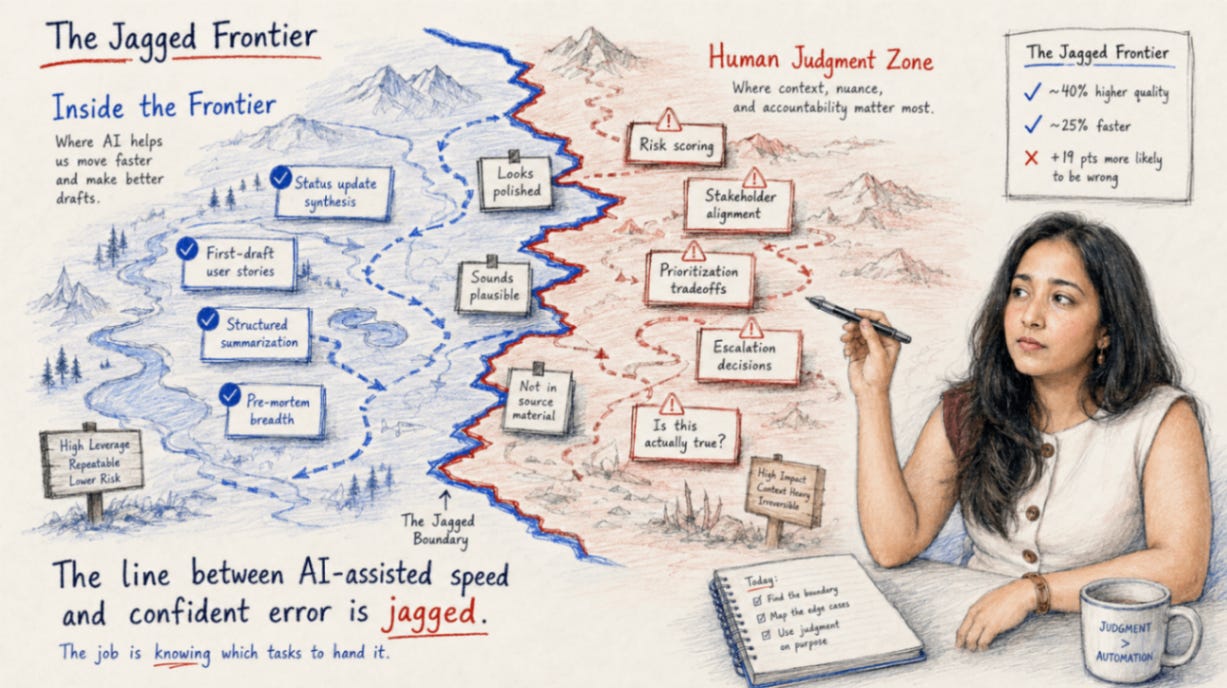 The Jagged Frontier
Inside the Frontier
Where AI helps
us move faster
and make better
drafts.
Status update
synthesis
First-draft
user stories
Structured
summarization
Pre-mortem
breadth
High Leverage
Repeatable
Lower Risk
Looks
polished
Sounds
plausible
Not in
source
material
The Jagged
Boundary
Human Judgment Zone
Where context, nuance,
and accountability matter most.
Risk scoring
Stakeholder
alignment
Prioritization
tradeoffs
Escalation
decisions
Is this
actually true?
High Impact
Context Heavy
Irreversible
The Jagged Frontier
~40% higher quality
~25% faster
+19 pts more likely
to be wrong
The line between AI-assisted speed
and confident error is jagged.
The job is knowing which tasks to hand it.
Today:
Find the boundary
Map the edge cases
Use judgment
on purpose
JUDGMENT
>
AUTOMATION